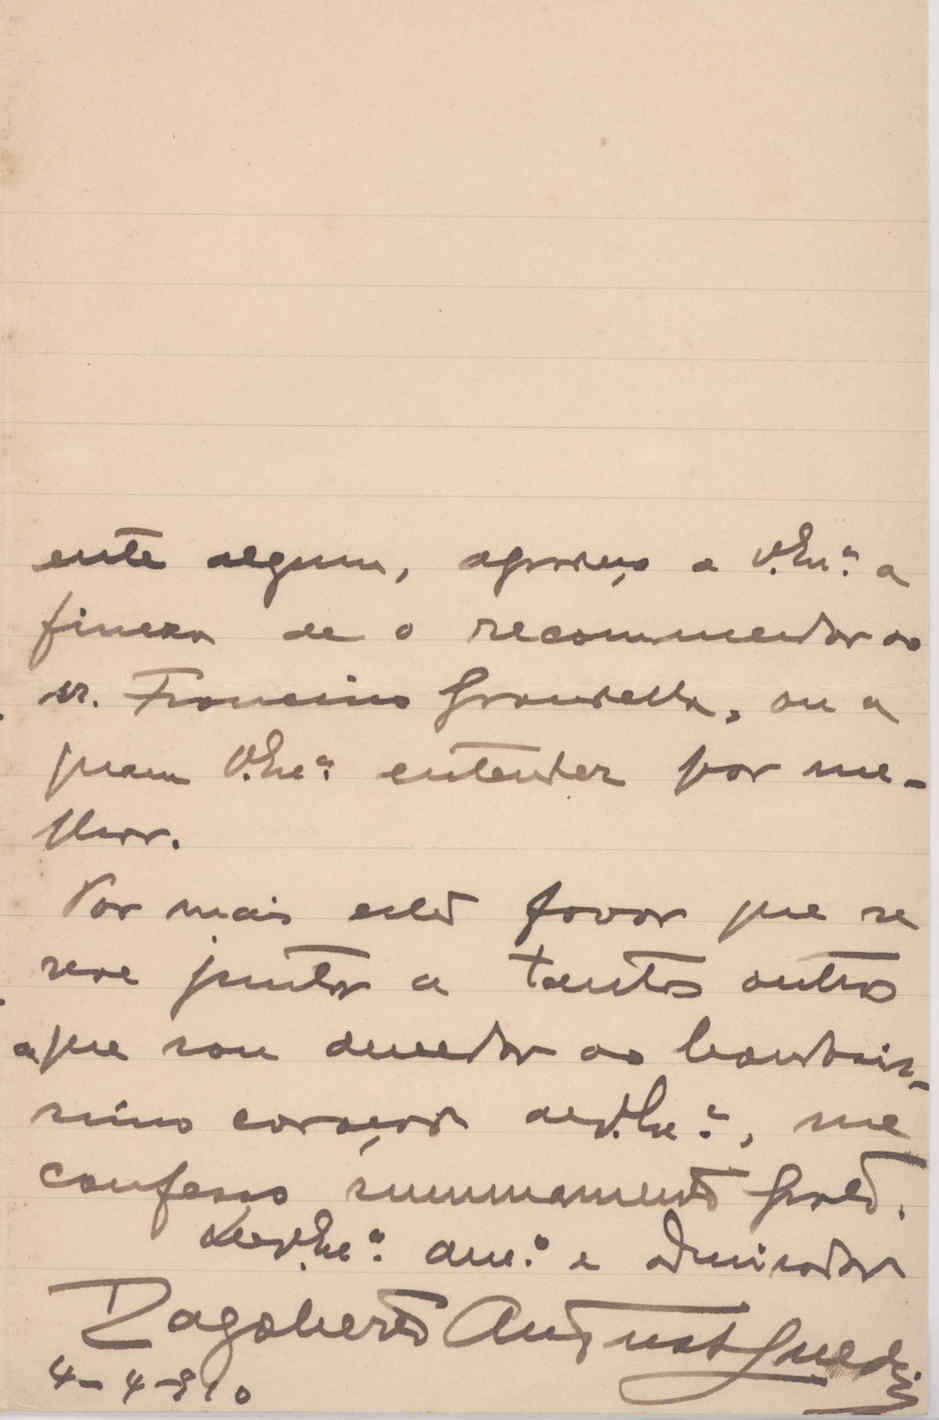 ente algum, agradeço a V. Exª. a
fineza de o recommendar ao
sr. Francisco Grandella, ou a
quem V. Exª. entender por me-
lhor.
Por mais este favor que se
vae juntar a tantos outros
a que sou devedor ao bondosis-
simo coração de V. Exª., me
confesso summamente grato.
De V. Exª. amº. e admirador
Dagoberto Augusto Guedes
4-4-910